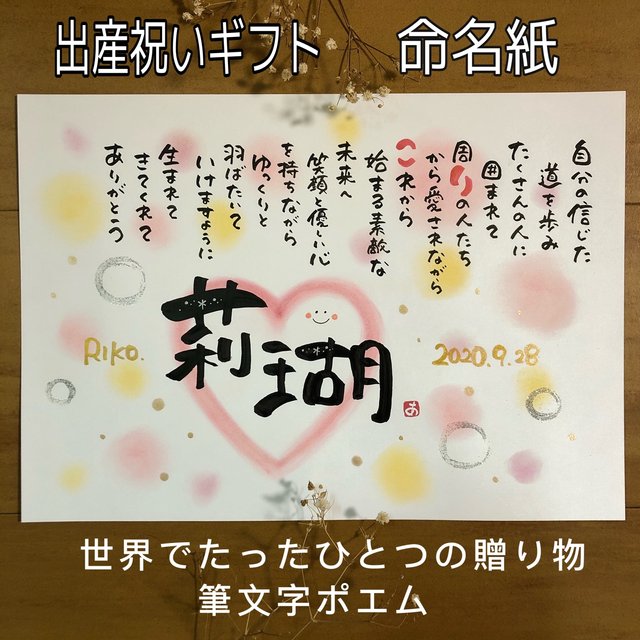 出産祝いギフト　命名紙
自分の信じた
道を歩み
たくさんの人に
囲まれて
周りの人たち
から愛されながら
これから
始まる素敵な
未来へ
笑顔と優しい心
を持ちながら
ゆっくりと
羽ばたいて
いけますように
生まれて
きてくれて
ありがとう
RIKO.
莉瑚
あ
2020.9.28
世界でたったひとつの贈り物
筆文字ポエム